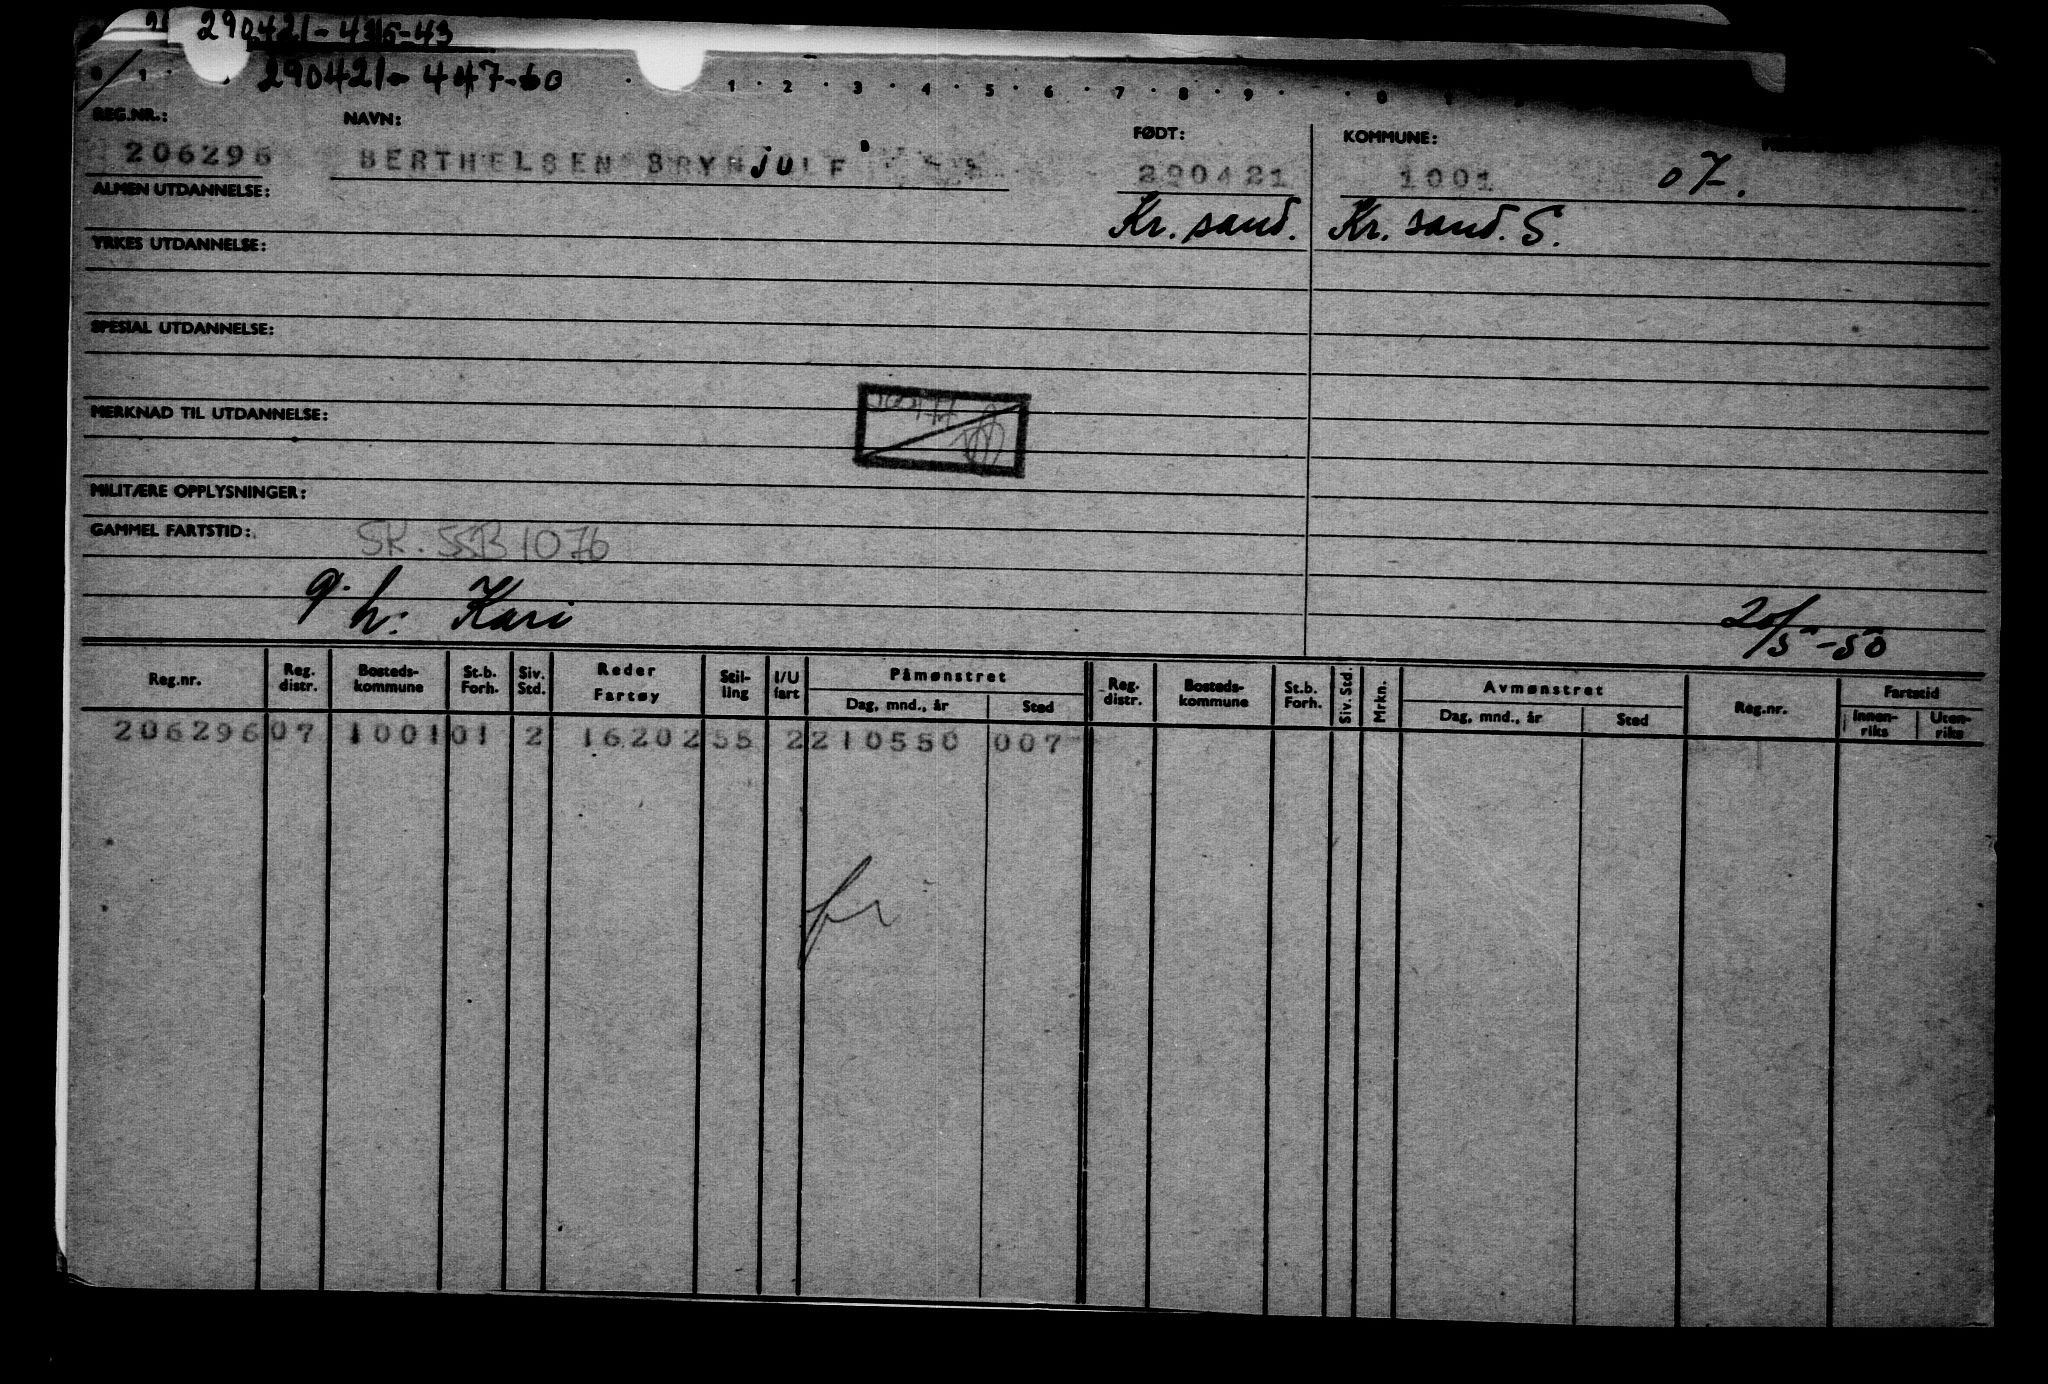 290421-435-43
290421-447-60
1 · 2 · 3 · 4 · 5 · 6 · 7 · 8 · 9 · 0
REG.NR.: NAVN: FØDT: KOMMUNE:
206296 BERTHELSEN BRYNJULF 290421 1001 07.
ALMEN UTDANNELSE: Kr. sand. Kr. sand. S.
YRKES UTDANNELSE:
SPESIAL UTDANNELSE:
MERKNAD TIL UTDANNELSE:
MILITÆRE OPPLYSNINGER:
GAMMEL FARTSTID: SK. SSB 1076
g. h: Kari 20/5-50
Reg.nr. Reg. distr. Bosteds-kommune St.b. Forh. Siv. Std. Reder Fartøy Stil-ling I/U fart Påmønstret Dag, mnd., år Sted Reg. distr. Bosteds-kommune St.b. Forh. Siv. Std. Mrkn. Avmønstret Dag, mnd., år Sted Reg.nr. Fartstid Innen-riks Uten-riks
206296 07 1001 01 2 16202 55 2 210550 007